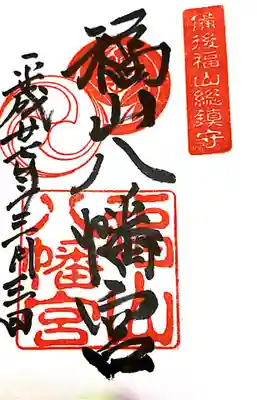 備後福山総鎮守
福山八幡宮
平成廿一年三月三日
福山
八幡宮